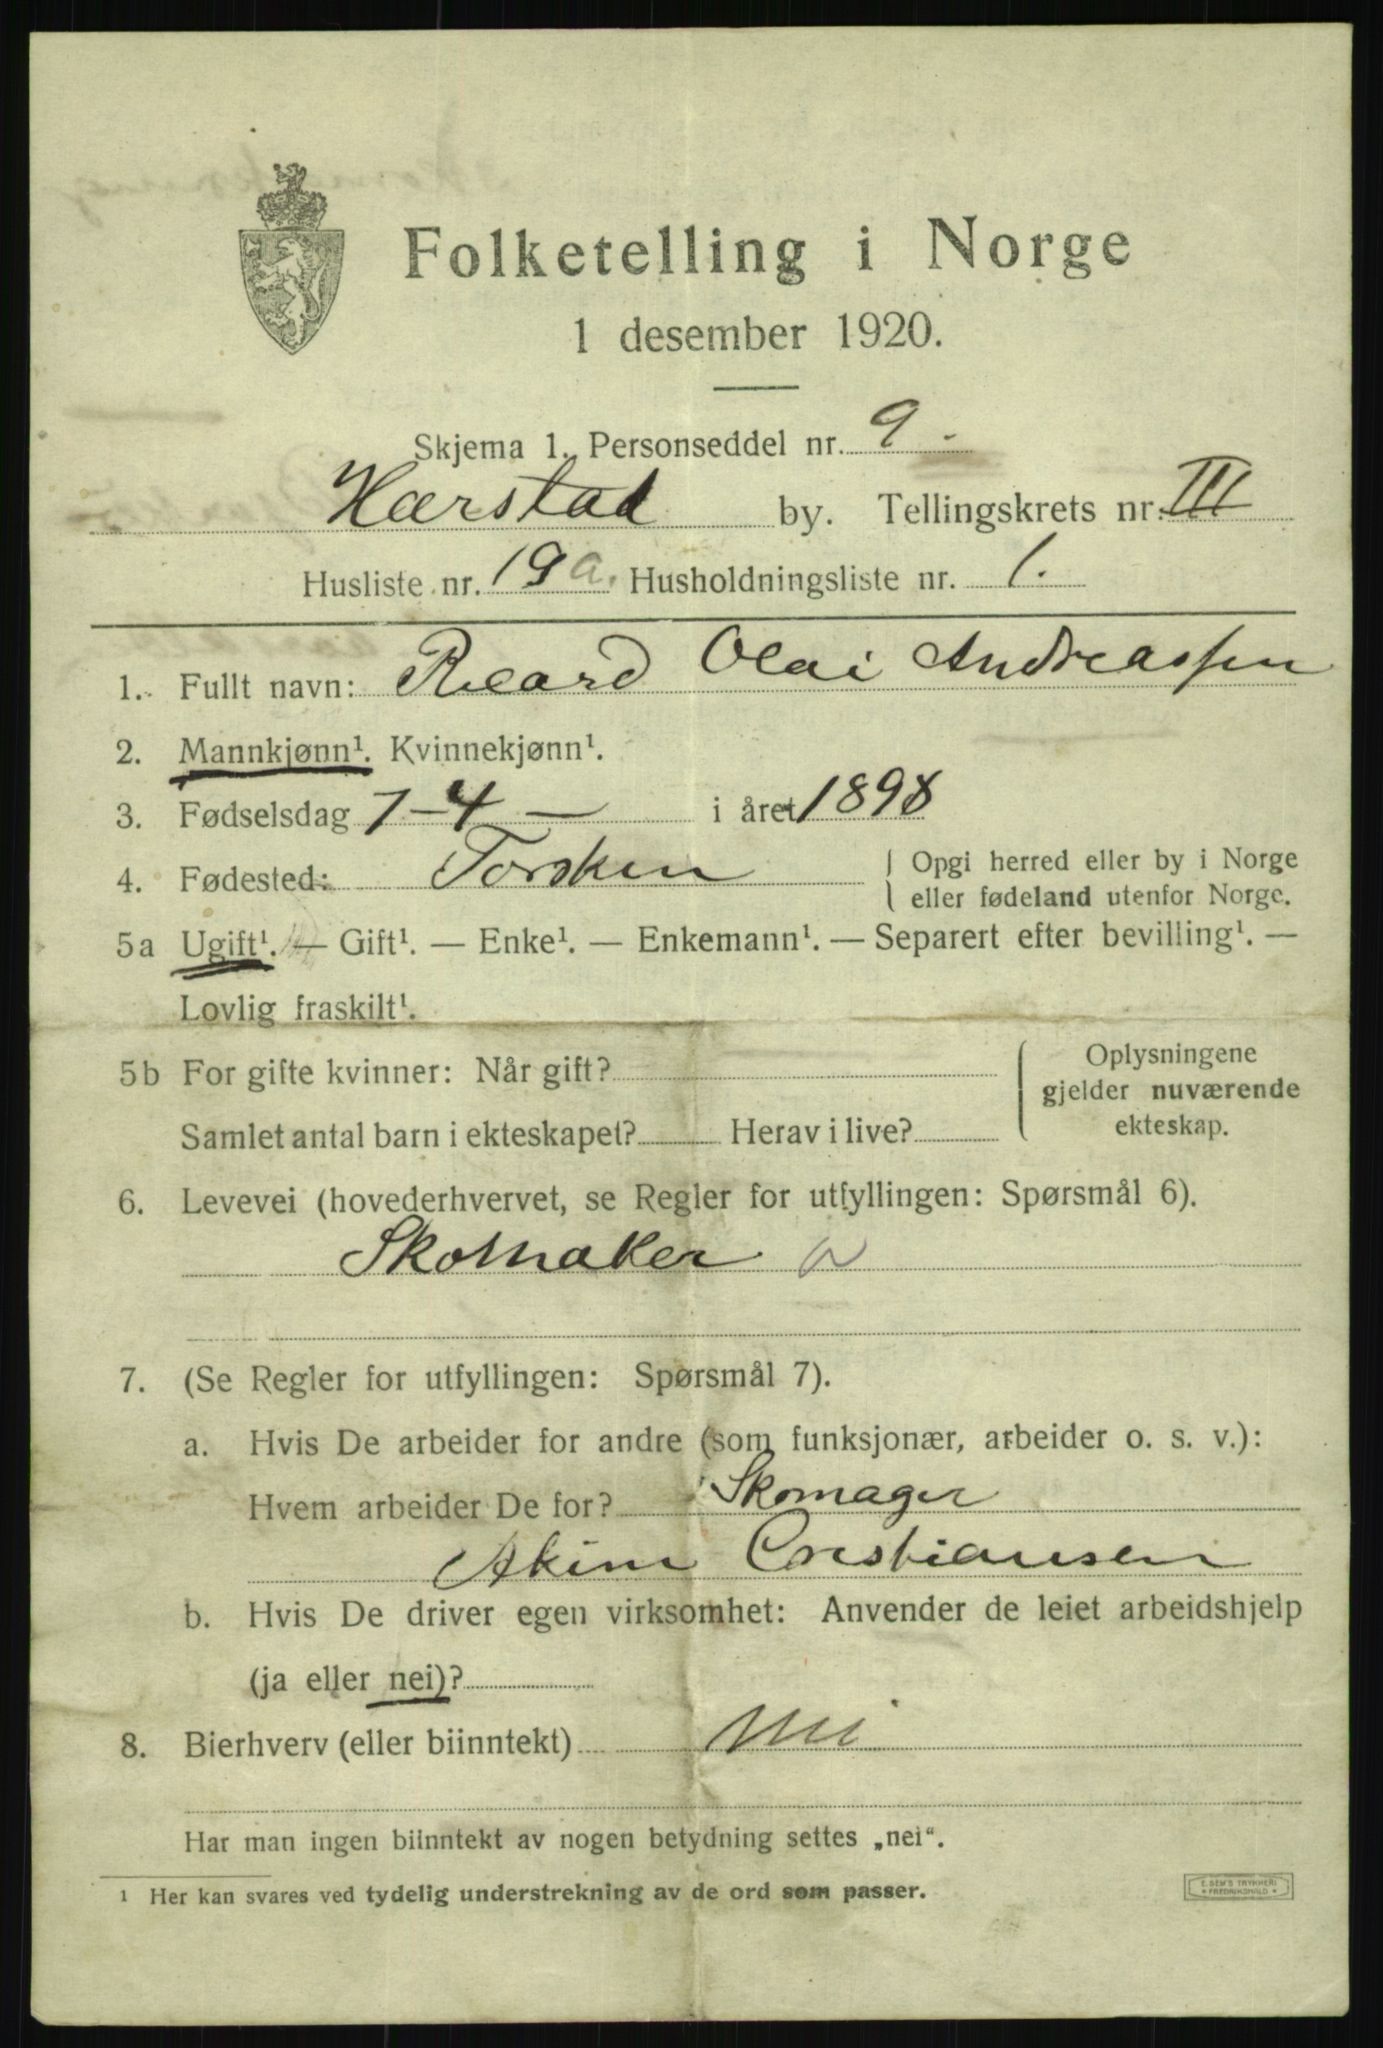 Folketelling i Norge
1 desember 1920.
Skjema 1. Personseddel nr. 9.
Harstad by. Tellingskrets nr. III
Husliste nr. 19 a. Husholdningsliste nr. 1.
1. Fullt navn: Rikard Olai Andreassen
2. Mannkjønn¹. Kvinnekjønn¹.
3. Fødselsdag 7-4 — i året 1898
4. Fødested: Torsken { Opgi herred eller by i Norge
eller fødeland utenfor Norge.
5a Ugift¹. — Gift¹. — Enke¹. — Enkemann¹. — Separert efter bevilling¹. —
Lovlig fraskilt¹.
5b For gifte kvinner: Når gift?
Samlet antal barn i ekteskapet? Herav i live?
Oplysningene
gjelder nuværende
ekteskap.
6. Levevei (hovederhvervet, se Regler for utfyllingen: Spørsmål 6).
Skomaker
7. (Se Regler for utfyllingen: Spørsmål 7).
a. Hvis De arbeider for andre (som funksjonær, arbeider o. s. v.):
Hvem arbeider De for? Skomager
Akim Cristiansen
b. Hvis De driver egen virksomhet: Anvender de leiet arbeidshjelp
(ja eller nei)?
8. Bierhverv (eller biinntekt) nei
Har man ingen biinntekt av nogen betydning settes „nei“.
¹ Her kan svares ved tydelig understrekning av de ord som passer.
E. SEM'S TRYKKERI
FREDRIKSHALD